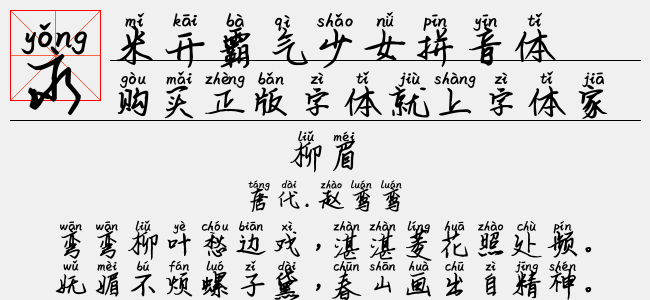 yǒng
永
mǐ kāi bà qì shǎo nǚ pīn yīn tǐ
米开霸气少女拼音体
gòu mǎi zhèng bǎn zì tǐ jiù shàng zì tǐ jiā
购买正版字体就上字体家
liǔ méi
柳眉
táng dài zhào luán luán
唐代.赵鸾鸾
wān wān liǔ yè chóu biān xì zhàn zhàn líng huā zhào chù pín
弯弯柳叶愁边戏，湛湛菱花照处频。
wǔ mèi bú fán luó zǐ dài chūn shān huà chū zì jīng shén
妩媚不烦螺子黛，春山画出自精神。